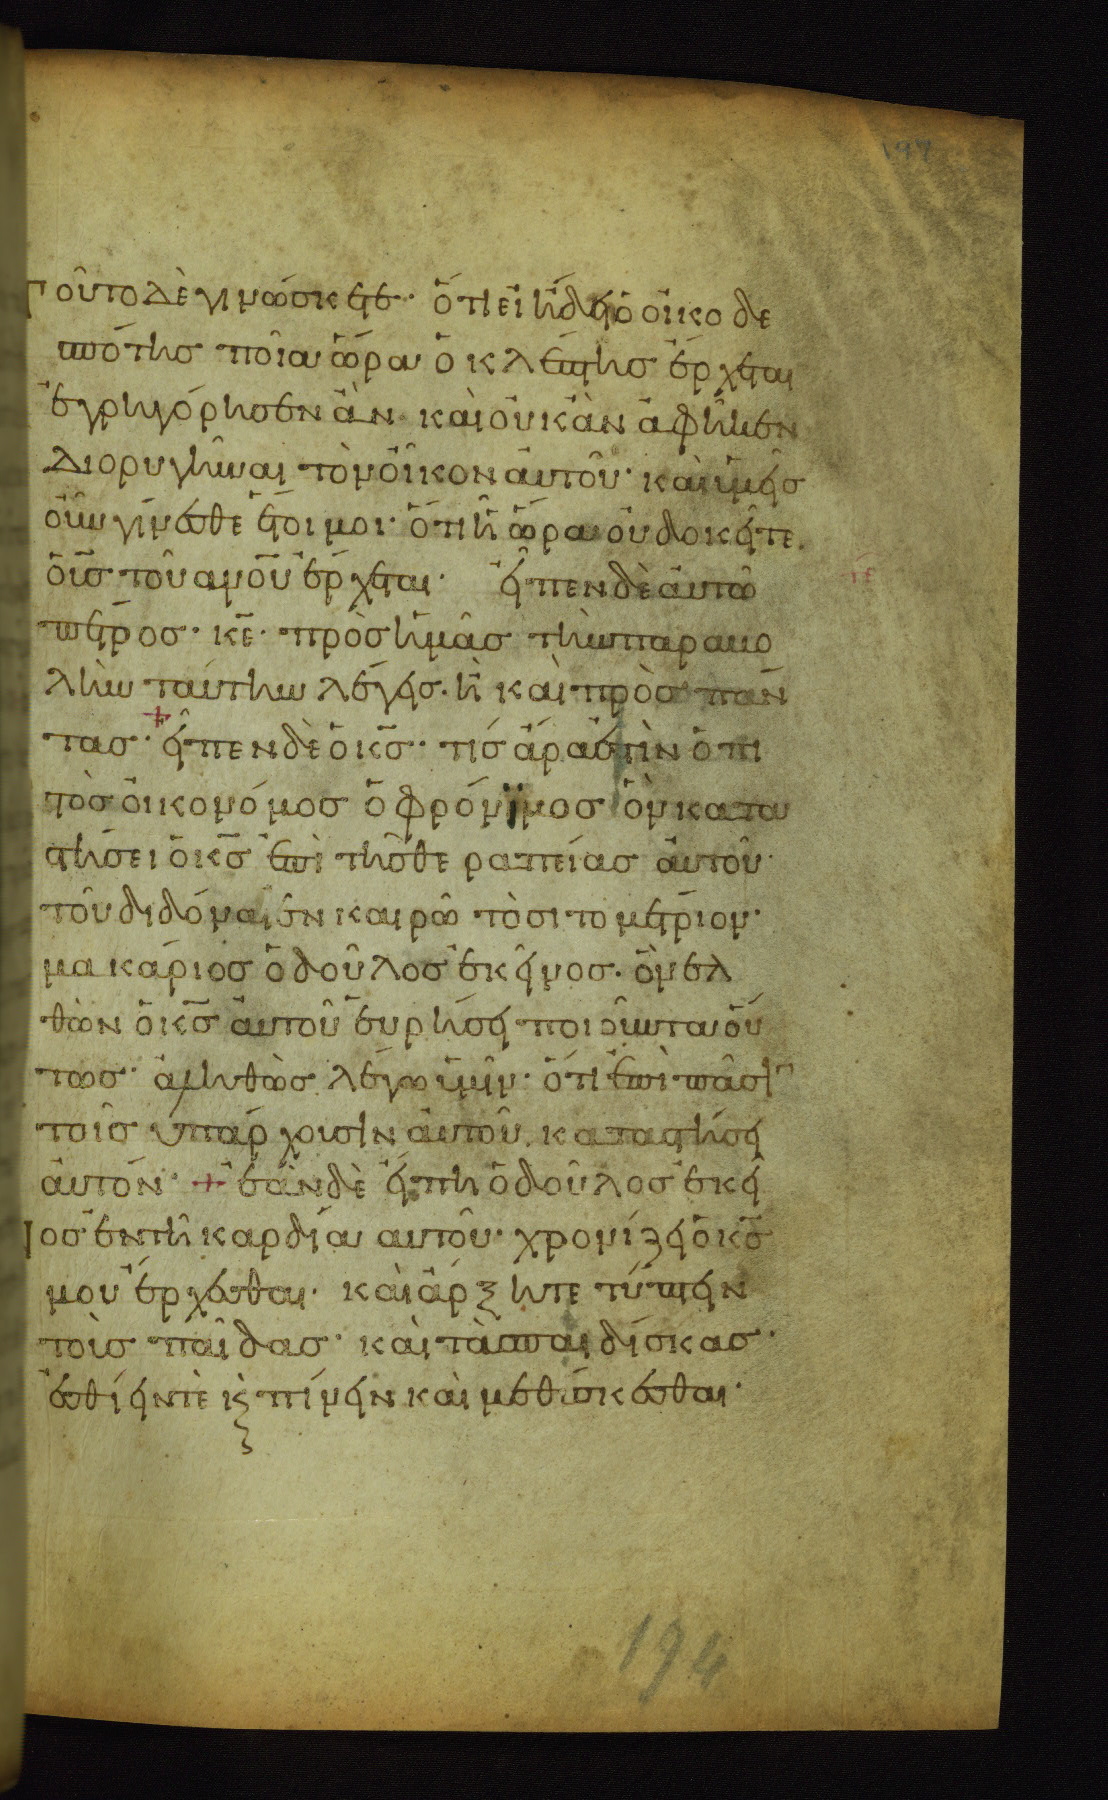 197
Τοῦτο δὲ γινώσκετε· ὅτι εἰ ᾔδει ὁ οἰκοδε
σπότης ποία ὥρα ὁ κλέπτης ἔρχεται
ἐγρηγόρησεν ἂν· καὶ οὐκ ἂν ἀφῆκεν
διορυγῆναι τὸν οἶκον αὐτοῦ· καὶ ὑμεῖς
οὖν γίνεσθε ἕτοιμοι· ὅτι ἧ ὥρα οὐ δοκεῖτε.
ὁ υ̅ς̅ τοῦ ανου ἔρχεται· εἶπεν δὲ αὐτῶ
πέτρος· κε· πρὸς ἡμᾶς τὴν παραβο
λὴν ταύτην λέγεις· ἢ καὶ πρὸς πάν
τας· εἶπεν δὲ ὁ κς· τίς ἄρα ἐστὶν ὁ πι
στὸς οἰκονόμος ὁ φρόνϊμος ὃν κατα
στήσει ὁ κς ἐπὶ τῆς θεραπείας αὐτοῦ·
τοῦ διδόναι ἐν καιρῶ τὸ σιτομέτριον·
μακάριος ὁ δοῦλος ἐκεῖνος· ὃν ἐλ
θὼν ὁ κς αὐτοῦ εὑρήσει ποιοῦντα οὕ
τως· ἀληθῶς λέγω ὑμῖν· ὅτι ἐπὶ πᾶσιν
τοῖς ὑπάρχουσιν αὐτοῦ. καταστήσει
αὐτόν· + ἐὰν δὲ εἴπη ὁ δοῦλος ἐκεῖ
νος ἐν τῆ καρδία αυτοῦ· χρονίζει ὁ κς
μου ἔρχεσθαι· καὶ ἄρξηται τύπτειν
τοὺς παῖδας· καὶ τὰς παιδίσκας·
ἐσθίειν τὲ κ πίνειν καὶ μεθύσκεσθαι·
194